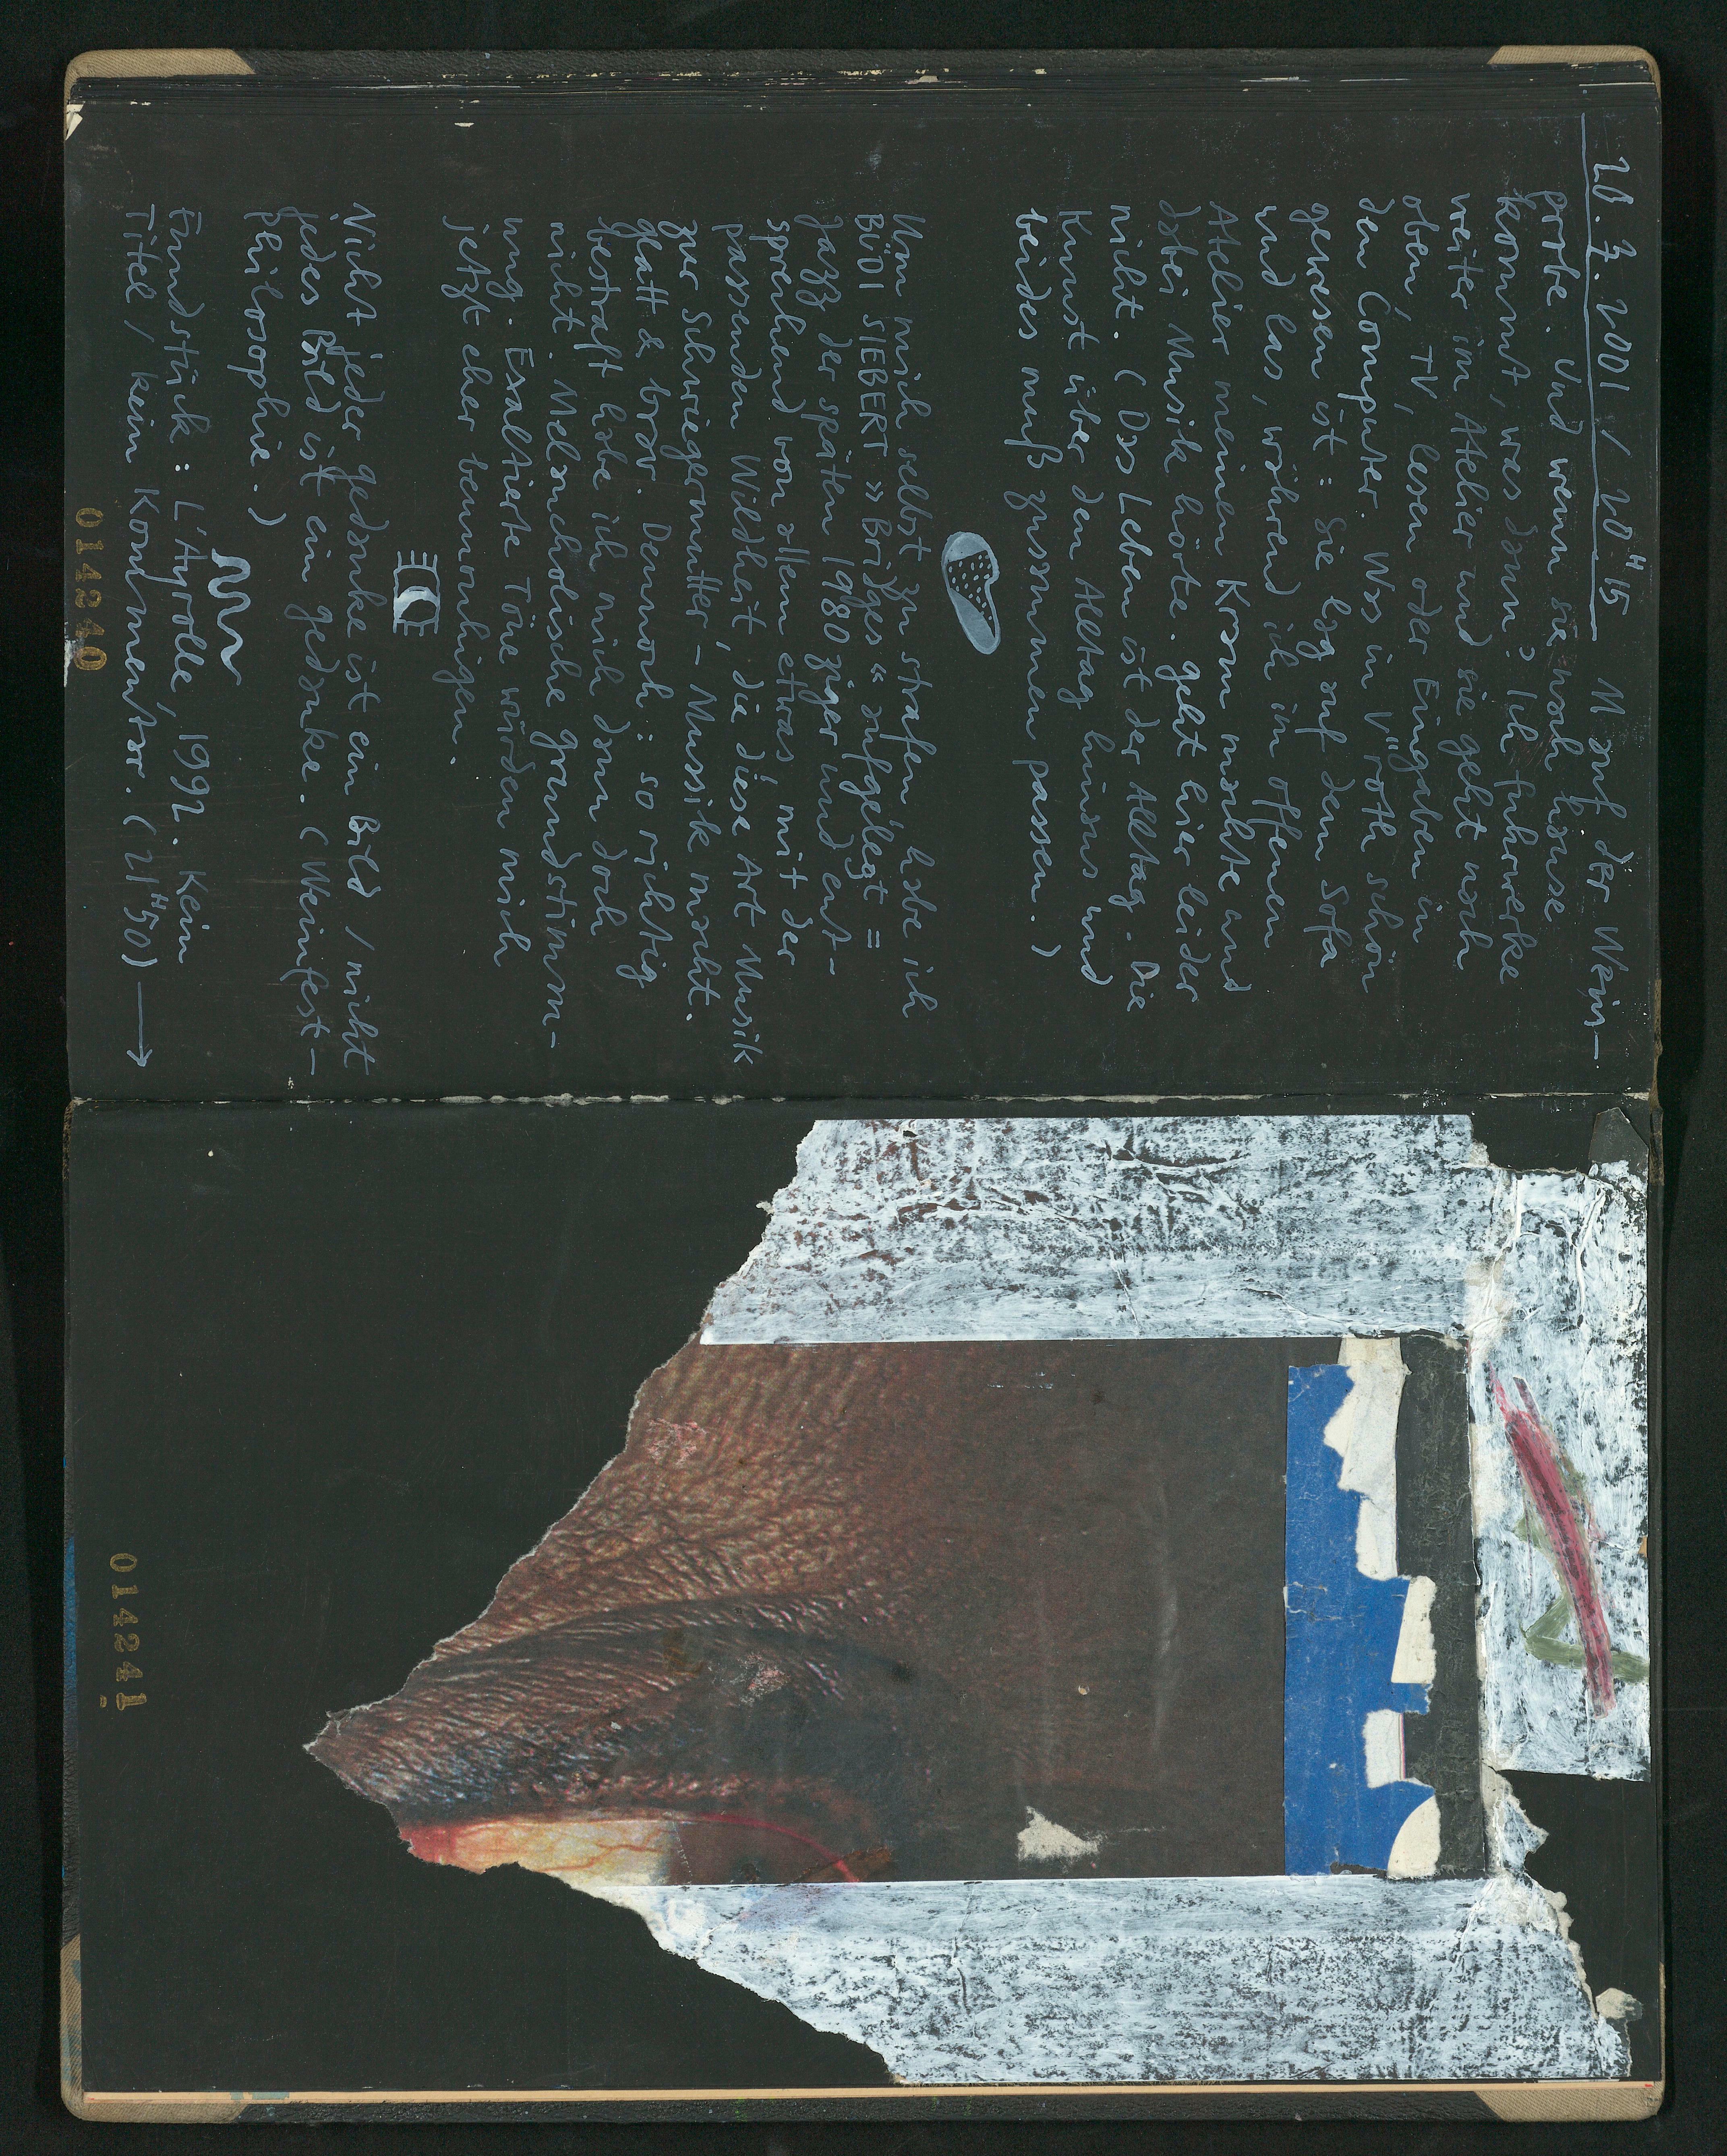 20.7.2001 / 20H15 M auf der Wein-
probe. Und wenn sie nach hause
kommt, was dann? Ich fuhrwerke
weiter im Atelier und sie geht nach
oben, TV, lesen oder Eingaben in
den Computer. Was in V"roth schön
gewesen ist: Sie lag auf dem Sofa
und las, während ich im offenen
Atelier meinen Kram machte und
dabei Musik hörte. geht hier leider
nicht. (Das Leben ist der Alltag. Die
Kunst über den Alltag hinaus und
beides muß zusammen passen.)
Um mich selbst zu strafen, habe ich
BÜDI SIEBERT »Bridges« aufgelegt =
Jazz der späten 1980ziger und ent-
sprechend von allem etwas, mit der
passenden 'Wildheit', die diese Art Musik
zur Schwiegermutter-Mussik macht.
glatt & brav. Dennoch: so richtig
bestraft habe ich mich dann doch
nicht. Melancholische grundstimm-
ung. Exaltierte Töne würden mich
jetzt eher beunruhigen.
Nicht jeder gedanke ist ein Bild / nicht
jedes Bild ist ein gedanke. (Weinfest-
philosophie.)
Fundstück: L'Ayrolle, 1992. Kein
Titel / kein Kommentar. (21H50) →
014240
014241